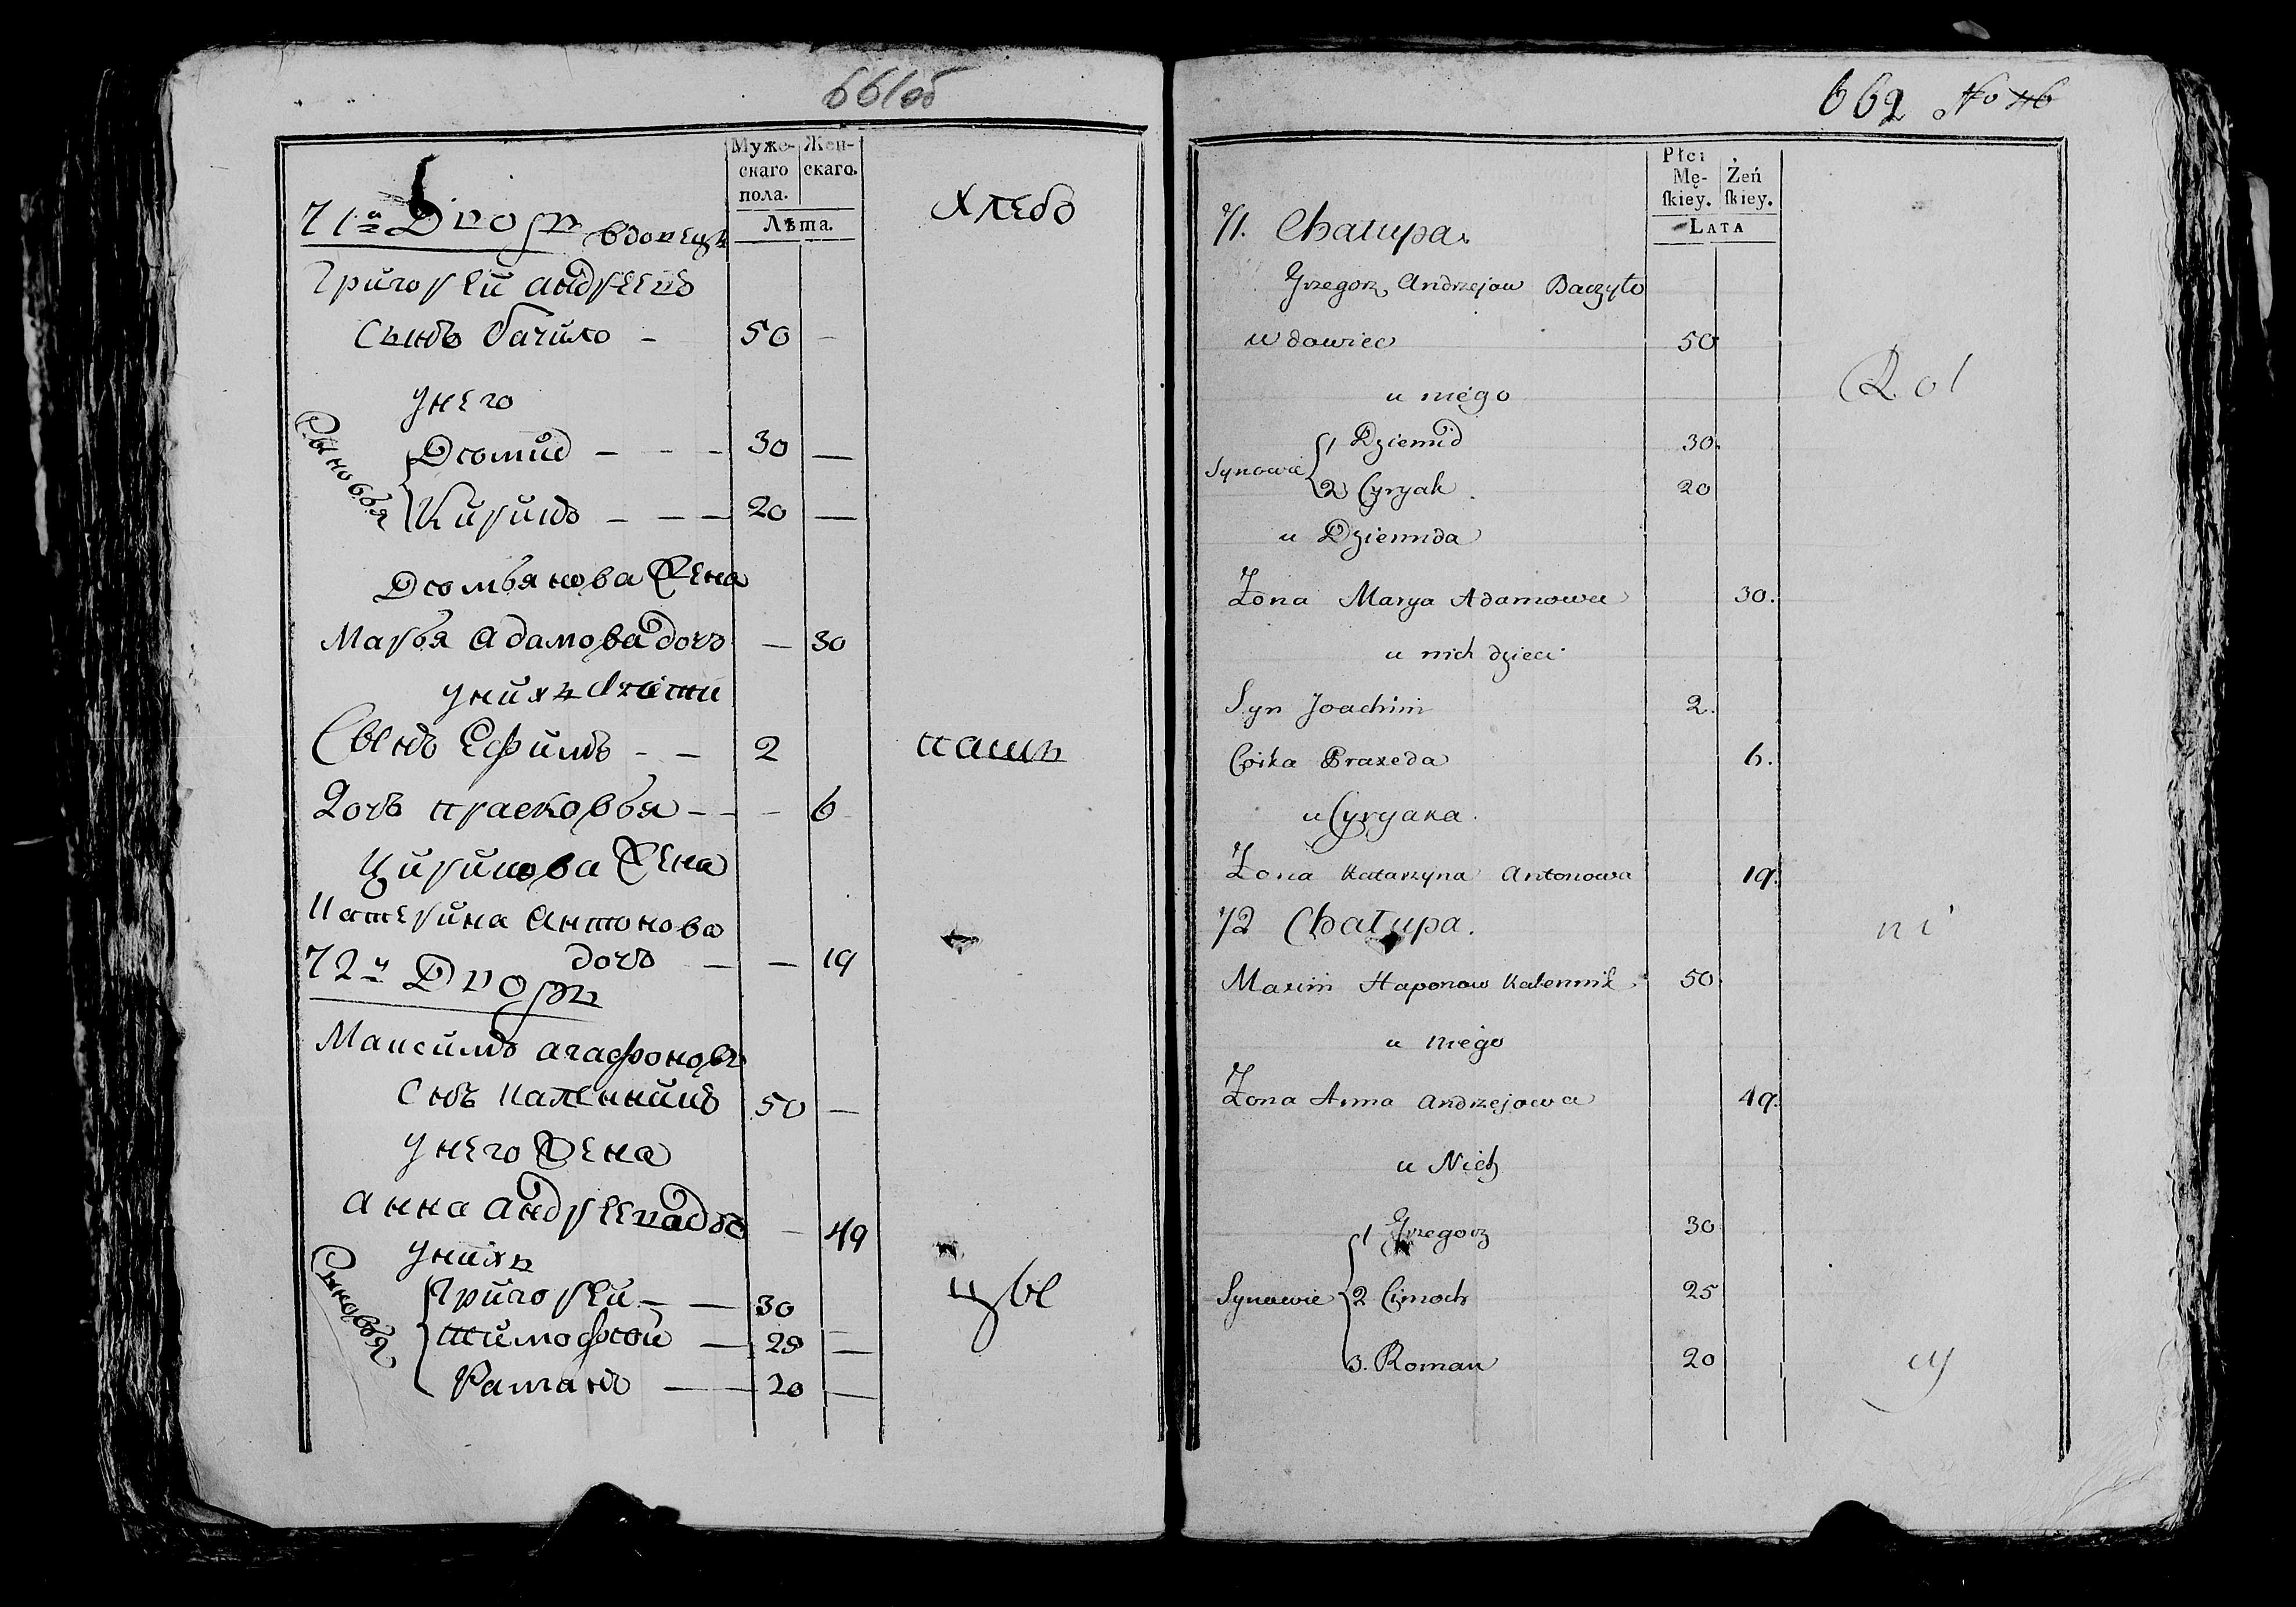 661об
Муже-
скаго
пола.
Жен-
скаго.
Лѣта.
71й Дворъ вдовецъ
хлебо
Григорей андреевъ
Сынъ бачило - 50 -
унего
Сыновья
Дѣомид - - - 30 —
Кирилъ - — — 20 —
Дѣомьянова Жена
Марья адамова дочь — 30
унихъ дѣети
Сынъ Ефимъ - — 2
пашъ
Дочь прасковья - - - 6
Кирилова Жена
Катерина антонова
дочь — — 19
72й Дворъ
Максимъ агафоновъ
Снъ каленникъ 50 —
унего Жена
анна андреева дочь - 49
унихъ
Сыновья
Григорей — — 30
цы
тимофѣй — 25 —
Раманъ — 20 —
662 No 116
Płci
Mę-
skiey.
Żeń
skiey.
LATA
71. Chałupa.
Grzegorz Andrzejow Baczyło
wdowiec 50
Rol
u niego
Synowie
1 Dziemid 30.
2 Cyryak. 20
u Dziemida
Żona Marya Adamowa 30.
u nich dzieci
Syn Joachim 2.
Córka Praxeda 6.
u Cyryaka.
Żona Katarzyna Antonowa 19.
72 Chałupa.
ni
Maxim Haponow Kalennik 50.
u niego
Żona Anna Andrzejowa 49.
u Nich
Synowie
1 Grzegorz 30
2 Cimoch 25
3. Roman 20
cy